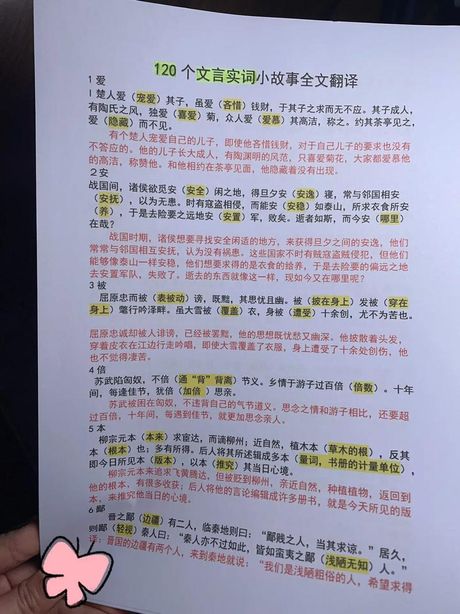 120 个文言实词小故事全文翻译
1 爱
l 楚人爱（宠爱）其子，虽爱（吝惜）钱财，于其子之求而无不应。其子成人，
有陶氏之风，独爱（喜爱）菊，众人爱（爱慕）其高洁，称之。约其茶亭见之，
爱（隐藏）而不见。
有个楚人宠爱自己的儿子，即使他吝惜钱财，对于自己儿子的要求也没有
不答应的。他的儿子长大成人，有陶渊明的风范，只喜爱菊花，大家都爱慕他
的高洁，称赞他。和他相约在茶亭见面，他隐藏着没有出现。
2 安
战国间，诸侯欲觅安（安全）闲之地，得旦夕安（安逸）寝，常与邻国相安
（安抚），以为无患。时有寇盗相侵，而能安（安稳）如泰山，所求衣食所安
（养），于是去险要之远地安（安置）军，败矣。逝者如斯，而今安（哪里）
在哉？
战国时期，诸侯想要寻找安全闲适的地方，来获得旦夕之间的安逸，他们
常常与邻国相互安抚，认为没有祸患。这些国家不时有贼寇盗贼侵犯，但他们能
够像泰山一样安稳，他们想要求得的是衣食的给养，于是去险要的偏远之地
去安置军队，失败了。逝去的东西就像这一样，现如今又在哪里呢？
3 被
屈原忠而被（表被动）谤，既黜，其思忧且幽。被（披在身上）发被（穿在
身上）氅行吟泽畔。虽大雪被（覆盖）衣，身被（遭受）十余创，尤不为苦也。
屈原忠诚却被人诽谤，已经被罢黜，他的思想既忧愁又幽深。他披散着头发，
穿着皮衣在江边行走吟唱，即使大雪覆盖了衣服，身上遭受了十余处创伤，他
也不觉得凄苦。
4 倍
苏武陷匈奴，不倍（通“背”背离）节义。乡情于游子过百倍（倍数）。十年
间，每逢佳节，犹倍（加倍）思亲。
苏武被困在匈奴，不违背自己的气节道义。思念之情和游子相比，还要超
过百倍，十年间，每遇到佳节，就更加思念亲人。
5 本
柳宗元本（本来）求宦达，而谪柳州；近自然，植木本（草木的根），反其
本（根本）也；多有所得。后人将其所述辑成多本（量词，书册的计量单位），
即今日所见本（版本），以本（推究）其当日心境。
柳宗元本来追求飞黄腾达，但被贬到柳州，亲近自然，种植植物，返回到
他的根本，有很多收获；后人将他的言论编辑成许多册书，就是今天所见的版
本，来推究他当日的心境。
6 鄙
晋之鄙（边疆）有二人，临秦地则曰：“鄙贱之人，当其求谅。”居久，
则鄙（轻视）秦人曰：“秦人亦不过如此，皆如蛮夷之鄙（浅陋无知）人。”
译：晋国的边疆有两个人，来到秦地就说：“我们是浅陋粗俗的人，希望求得